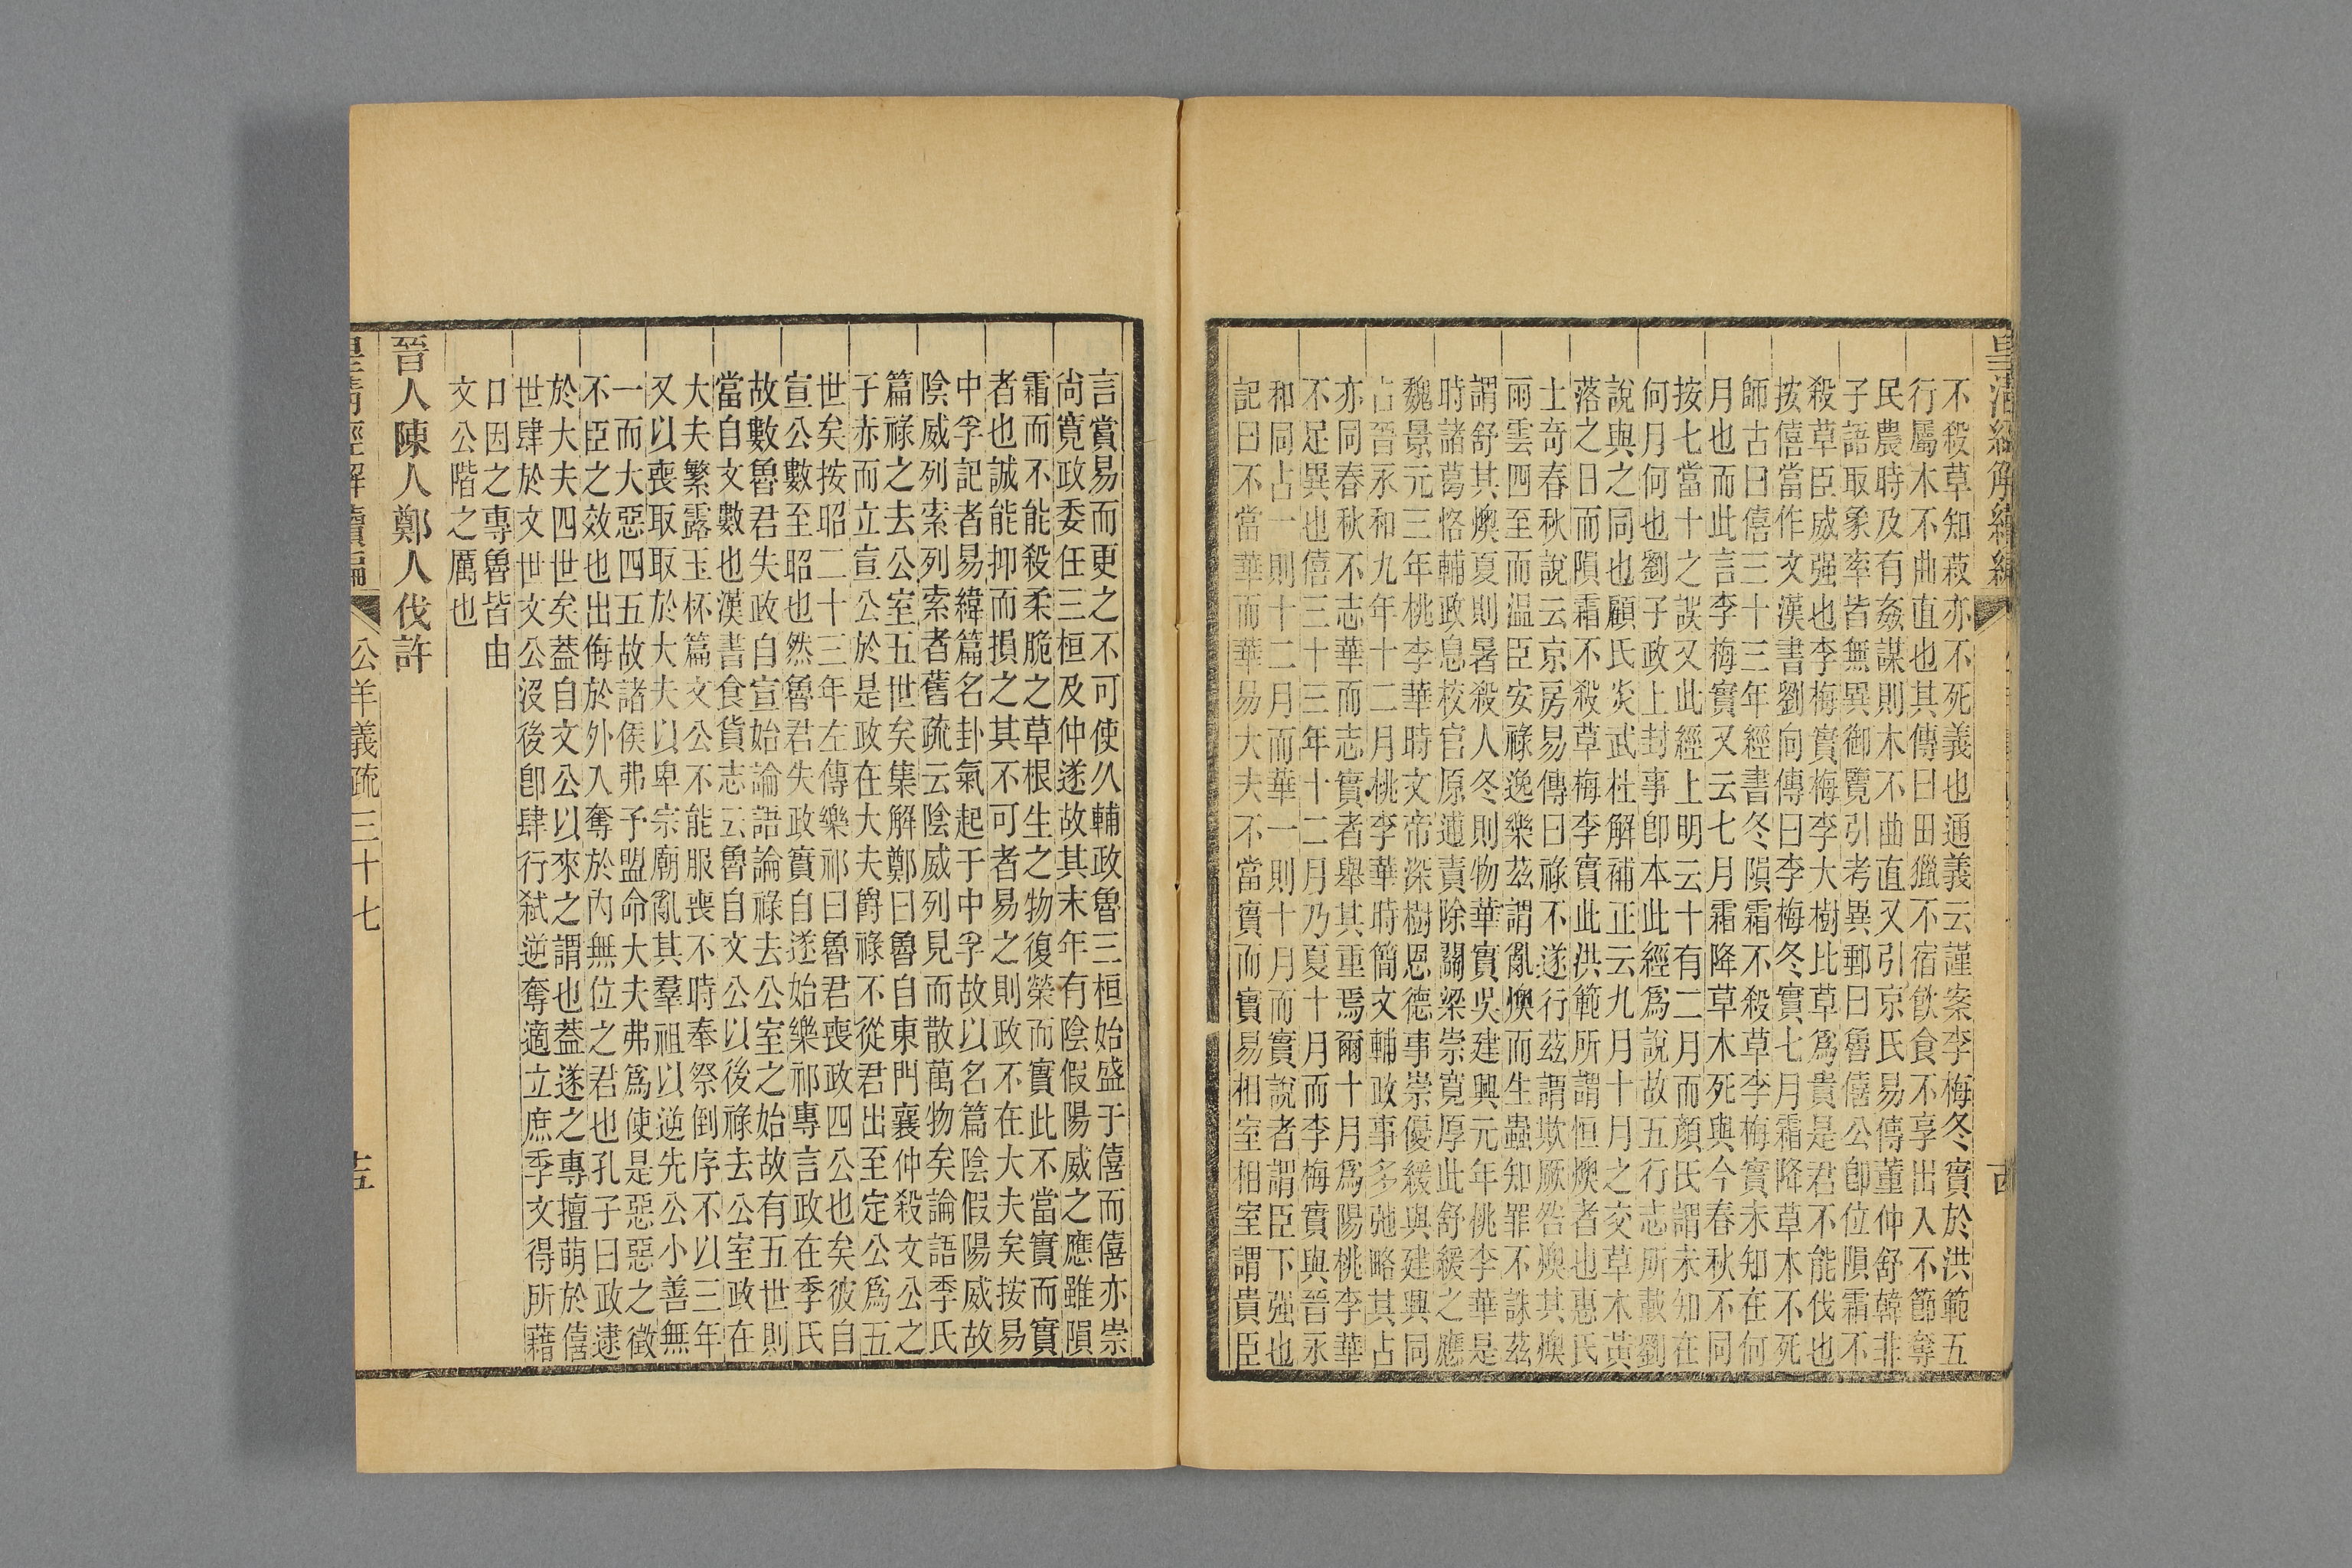 皇淸經解續編
不殺草知菽亦不死義也通義云謹案李梅冬實於洪範五
行屬木不曲直也其傳曰田獵不宿飮食不享出入不節奪
民農時及有姦謀則木不曲直又引京氏易傳董仲舒韓非
子語取象率皆無異御覽引考異郵曰魯僖公卽位隕霜不
殺草臣威强也李梅實梅李大樹比草爲貴是君不能伐也
按僖當作文漢書劉向傳曰李梅冬實七月霜降草木不死
師古曰僖三十三年經書冬隕霜不殺草李梅實未知在何
月也而此言李梅實又云七月霜降草木死與今春秋不同
按七當十之誤又此經上明云十有二月而顏氏謂未知在
何月何也劉子政上封事卽本此經爲說故五行志所載劉
說與之同也顧氏炎武杜解補正云九月十月之交草木黃
落之日而隕霜不殺草梅李實此洪範所謂恒燠者也惠氏
士奇春秋說云京房易傳曰祿不遂行茲謂欺厥咎燠其燠
雨雲四至而温臣安祿逸樂茲謂亂燠而生蟲知罪不誅茲
謂舒其燠夏則暑殺人冬則物華實吳建興元年桃李華是
時諸葛恪輔政息校官原逋責除關梁崇寛厚此舒緩之應
魏景元三年桃李華時文帝深樹恩德事崇優緩與建興同
占晉永和九年十二月桃李華時簡文輔政事多弛略其占
亦同春秋不志華而志實者舉其重焉爾十月爲陽桃李華
不足異也僖三十三年十二月乃夏十月而李梅實與晉永
和同占一則十二月而華一則十月而實說者謂臣下强也
記曰不當華而華易大夫不當實而實易相室相室謂貴臣
言賞易而更之不可使久輔政魯三桓始盛于僖而僖亦崇
尙寛政委任三桓及仲遂故其末年有陰假陽威之應雖隕
霜而不能殺柔脆之草根生之物復榮而實此不當實而實
者也誠能抑而損之其不可者易之則政不在大夫矣按易
中孚記者易緯篇名卦氣起于中孚故以名篇陰假陽威故
陰威列索列索者舊疏云陰威列見而散萬物矣論語季氏
篇祿之去公室五世矣集解鄭曰魯自東門襄仲殺文公之
子赤而立宣公於是政在大夫爵祿不從君出至定公爲五
世矣按昭二十三年左傳樂祁曰魯君喪政四公也矣彼自
宣公數至昭也然魯君失政實自遂始樂祁專言政在季氏
故數魯君失政自宣始論語論祿去公室之始故有五世則
當自文數也漢書食貨志云魯自文公以後祿去公室政在
大夫繁露玉杯篇文公不能服喪不時奉祭倒序不以三年
又以喪取取於大夫以卑宗廟亂其羣祖以逆先公小善無
一而大惡四五故諸侯弗予盟命大夫弗爲使是惡惡之徵
不臣之效也出侮於外入奪於內無位之君也孔子曰政逮
於大夫四世矣蓋自文公以來之謂也蓋遂之專擅萌於僖
世肆於文世文公沒後卽肆行弑逆奪適立庶季文得所藉
口因之專魯皆由
文公階之厲也
晉人陳人鄭人伐許
公羊義疏三十七